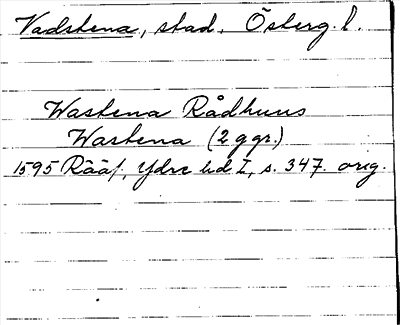 Vadstena, stad, Österg. l.
Wastena Rådhuus
Wastena (2 ggr.)
1595 Rääf, Ydre hd I, s. 347. orig.